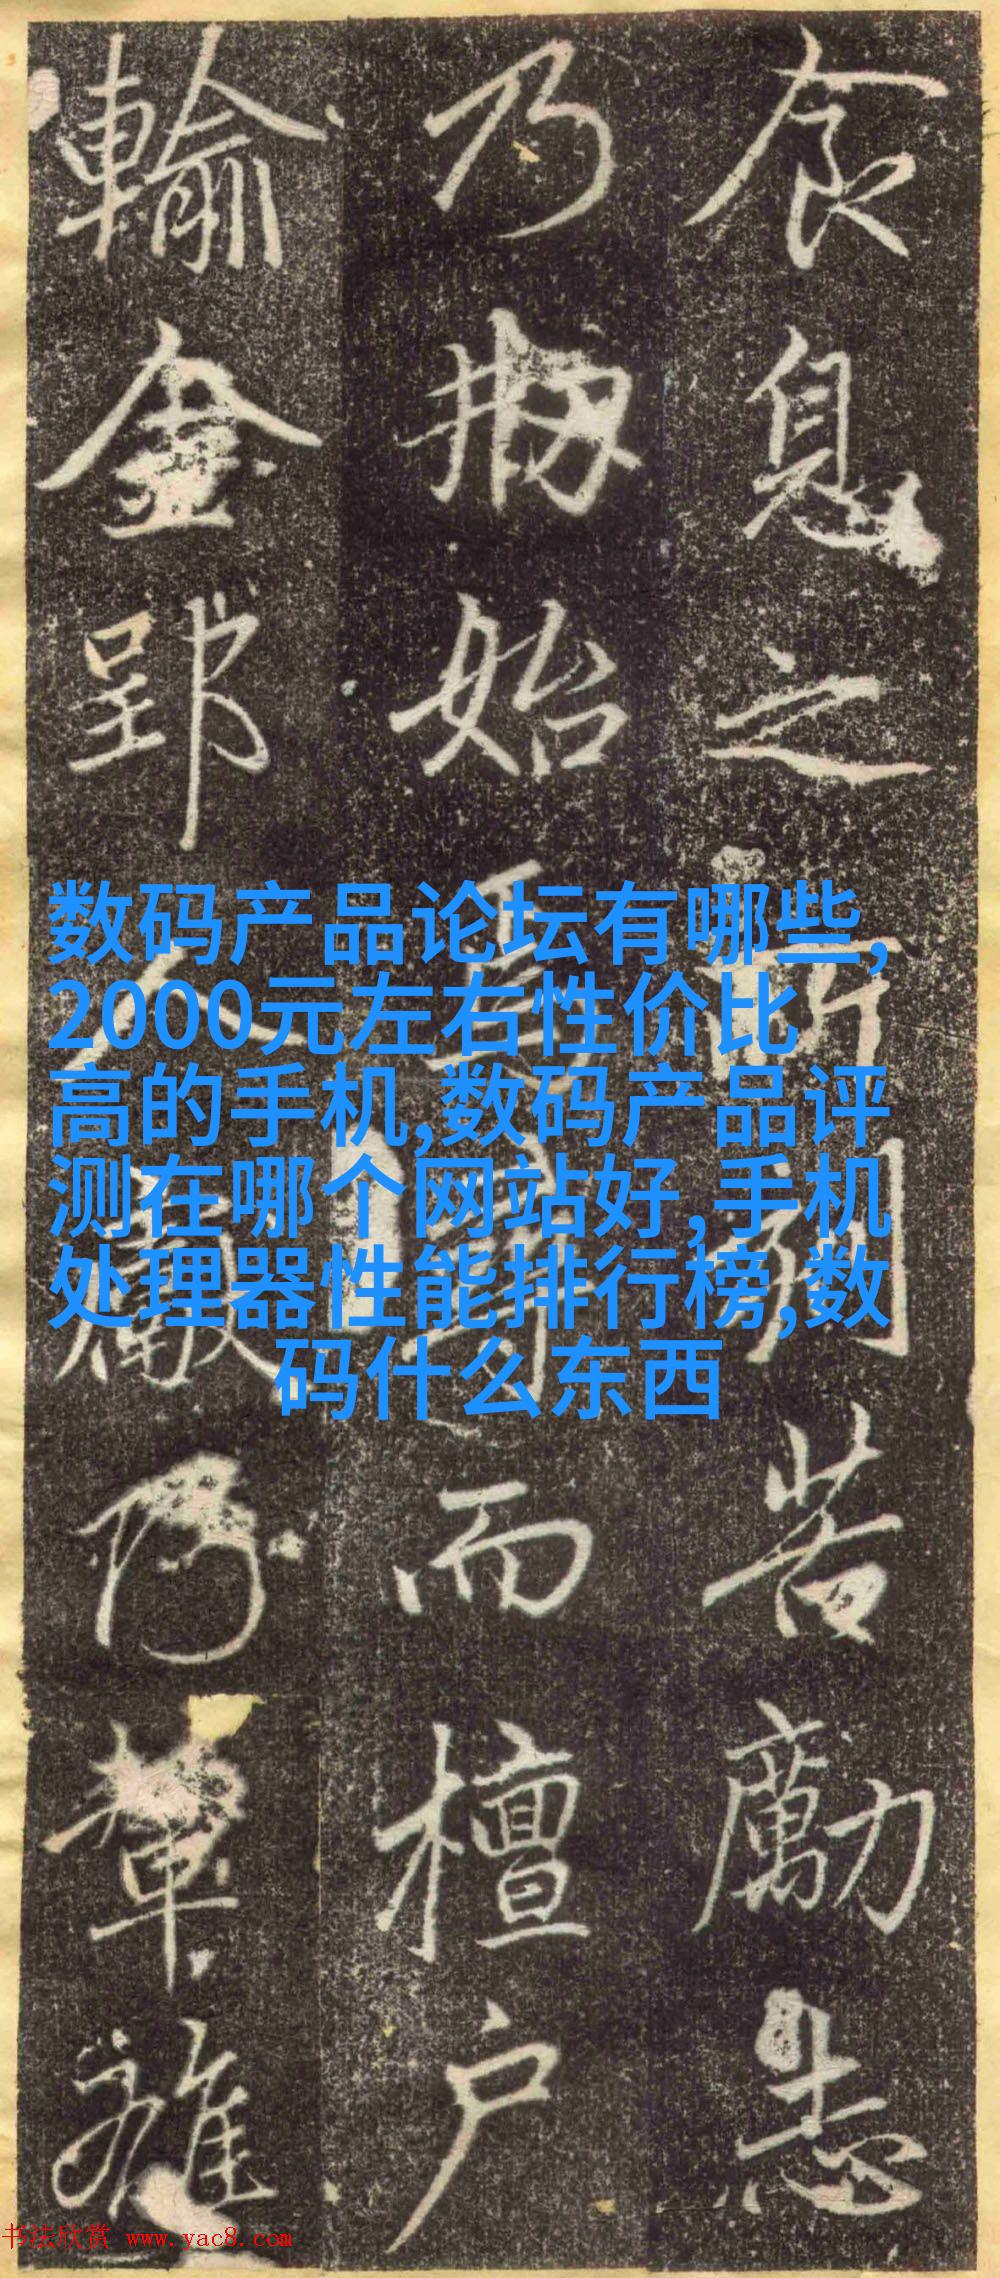 食息之所刻苦勵志
乃搦始焉寫而檀户
輸金郢人
乃葦雖
数码产品论坛有哪些,
2000元左右性价比
高的手机,数码产品评
测在哪个网站好,手机
处理器性能排行榜,数
码什么东西
书法欣赏 www.yac8.com